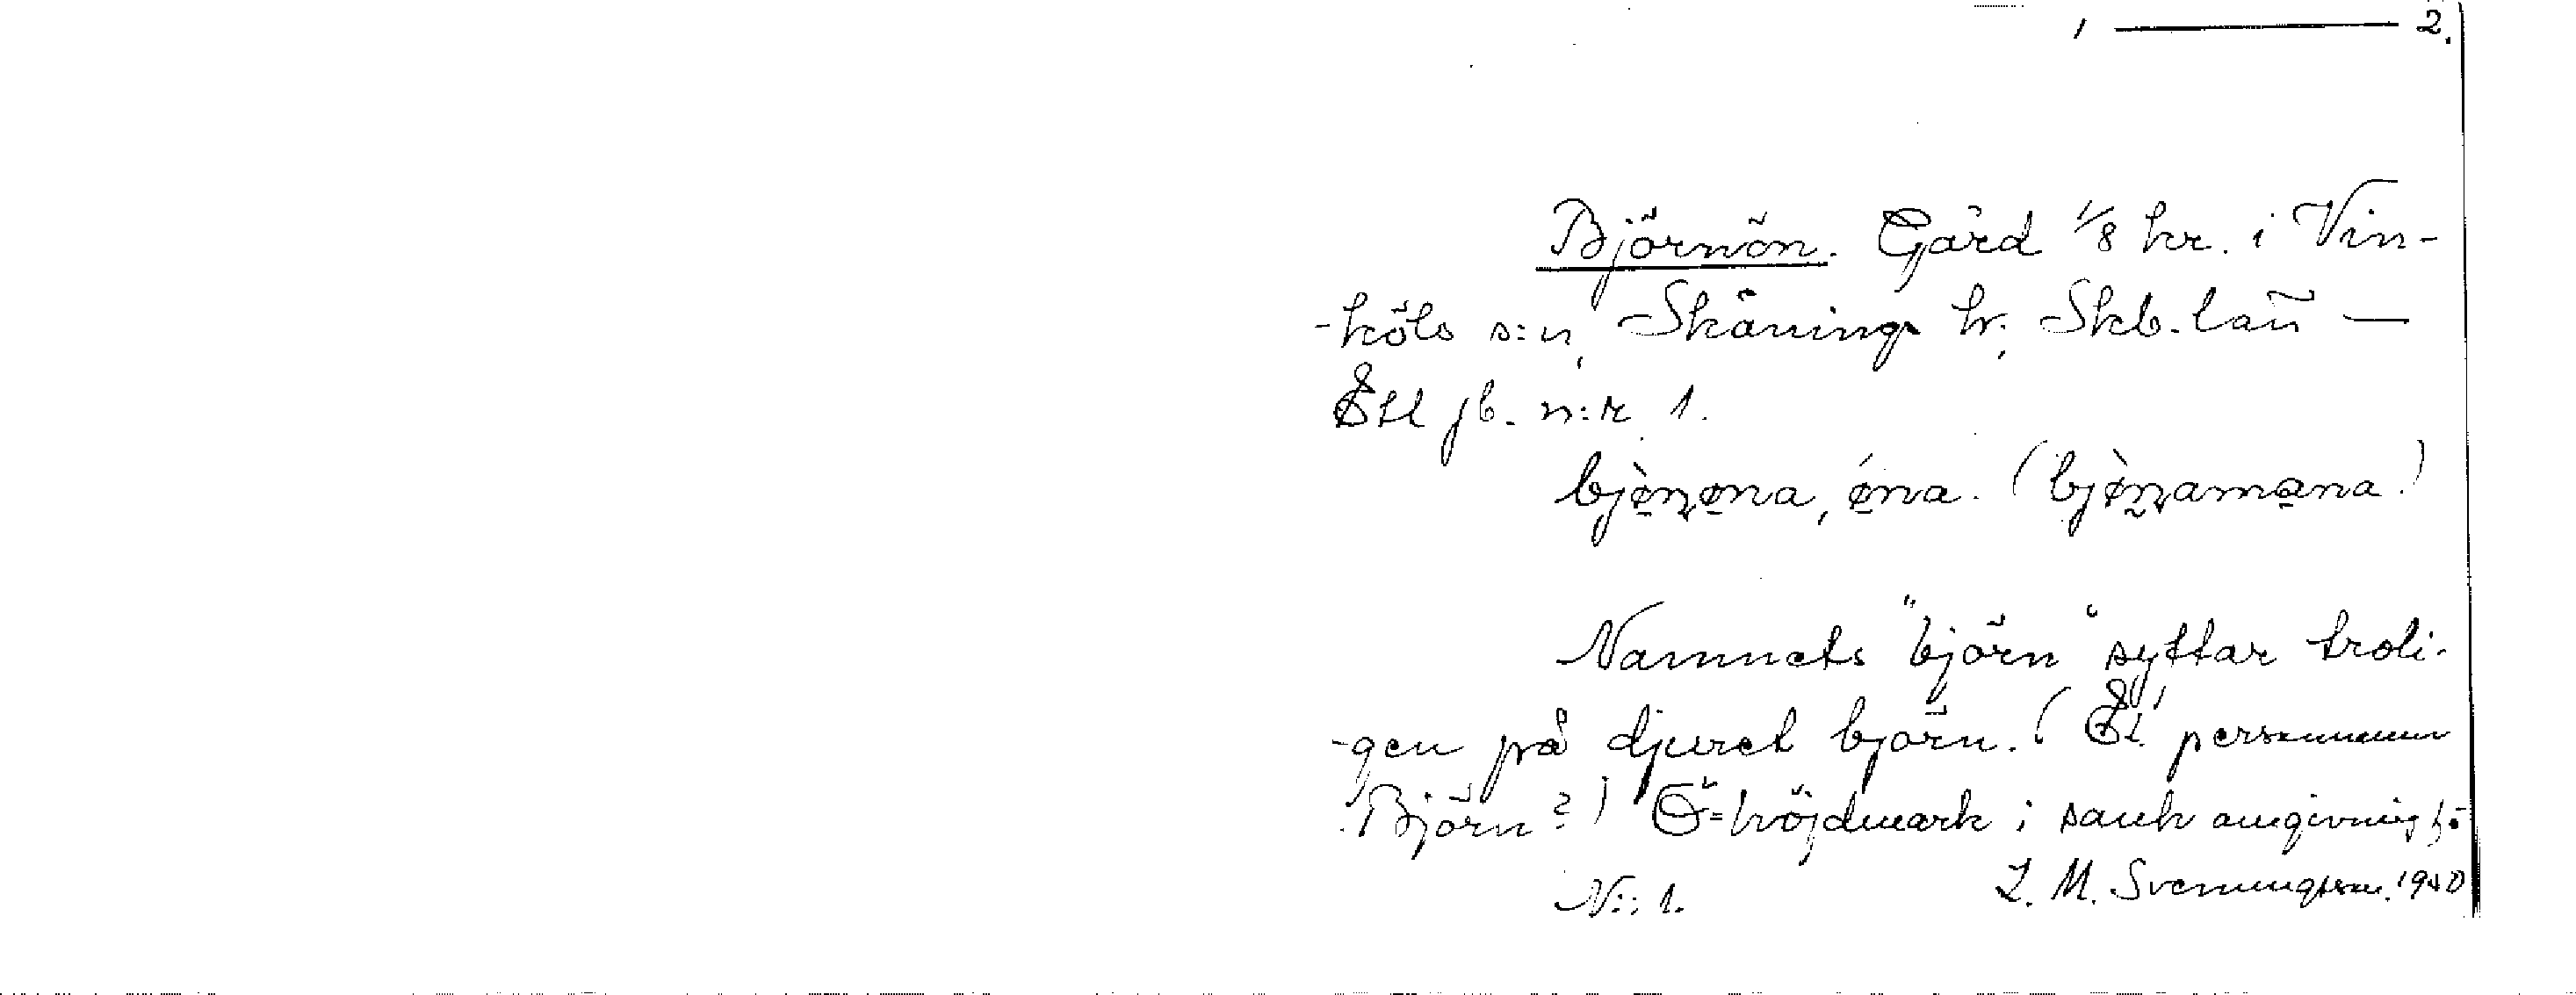 1 ——— 2.
Björnön. Gård 1/8 hr. i Vin-
-köls s:n, Skånings hr, Skb. län —
Ett jb. n:r 1.
bjø̀n̥øna, ǿna. (bjø̀n̥amana.)
Namnets "björn" syftar troli-
-gen på djuret björn. (El. personnamn
Björn?) Ö = höjdmark i sank omgivning
N:r 1. L. M. Svenungsson. 1940